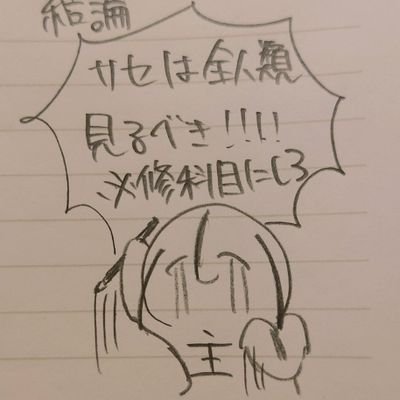 結論
サセは全人類
見るべき!!!!
必修科目にしろ
主